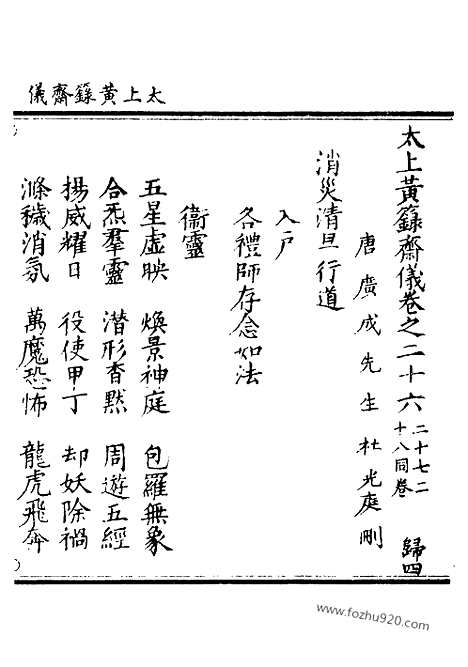 太上黃籙齋儀
太上黃籙齋儀卷之二十六 二十七二十八同卷 歸四
唐廣成先生杜光庭刪
消災清旦行道
入戶
各禮師存念如法
衞靈
五星虛映 煥景神庭 包羅無象
合炁羣靈 潛形杳默 周遊五經
揚威耀日 役使甲丁 却妖除禍
滌穢消氛 萬魔恐怖 龍虎飛奔
www.fozhu920.com